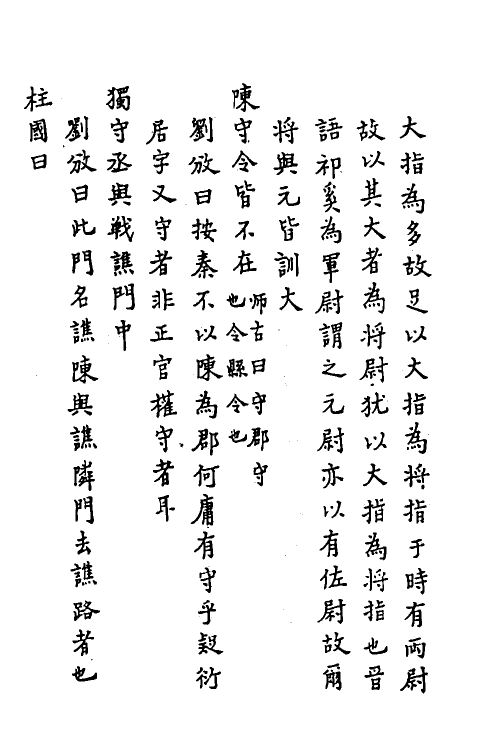 大指為多故足以大指為將指于時有两尉
故以其大者為將尉犹以大指為将指也晋
語祁奚為軍尉謂之元尉亦以有佐尉故爾
将與元皆訓大
陳守令皆不在師古曰守郡守也令縣令也
劉攽曰按秦不以陳為郡何庸有守乎疑衍
居字又守者非正官權守者耳
獨守丞與戰譙門中
劉攽曰此門名譙陳與譙隣門去譙路者也
柱國曰